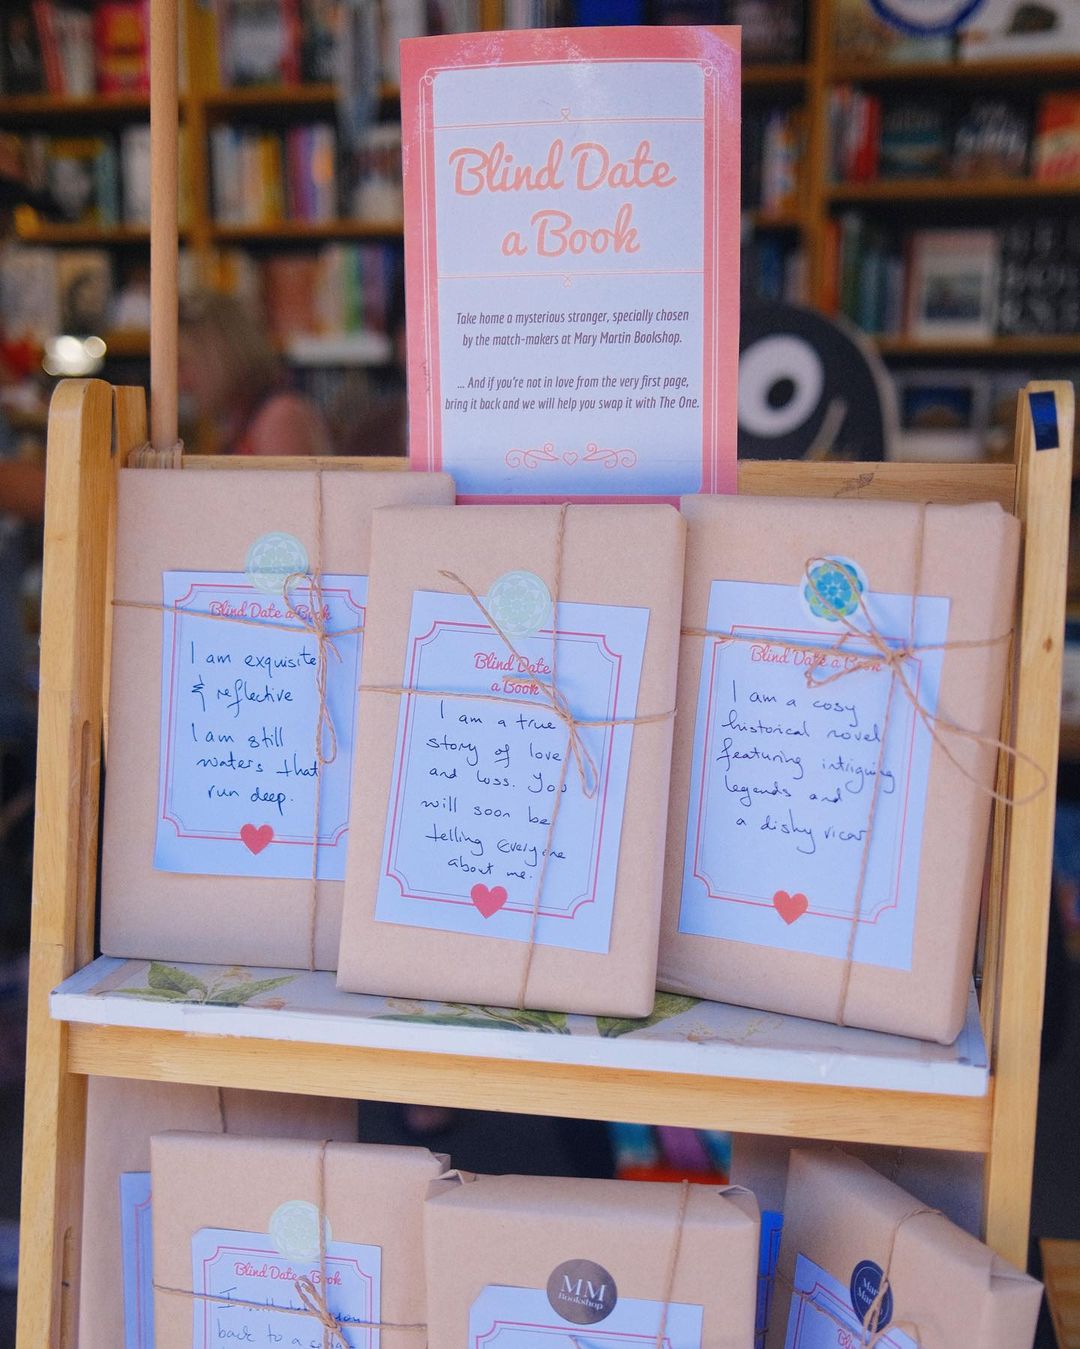 Blind Date
a Book
Take home a mysterious stranger, specially chosen
by the match-makers at Mary Martin Bookshop.
... And if you're not in love from the very first page,
bring it back and we will help you swap it with The One.
Blind Date a Book
I am exquisite
& reflective
I am still
waters that
run deep.
Blind Date
a Book
I am a true
story of love
and loss. You
will soon be
telling everyone
about me.
Blind Date a Book
I am a cosy
historical novel
featuring intriguing
legends and
a dishy vicar
Blind Date a Book
I will you
back to a
MM
Bookshop